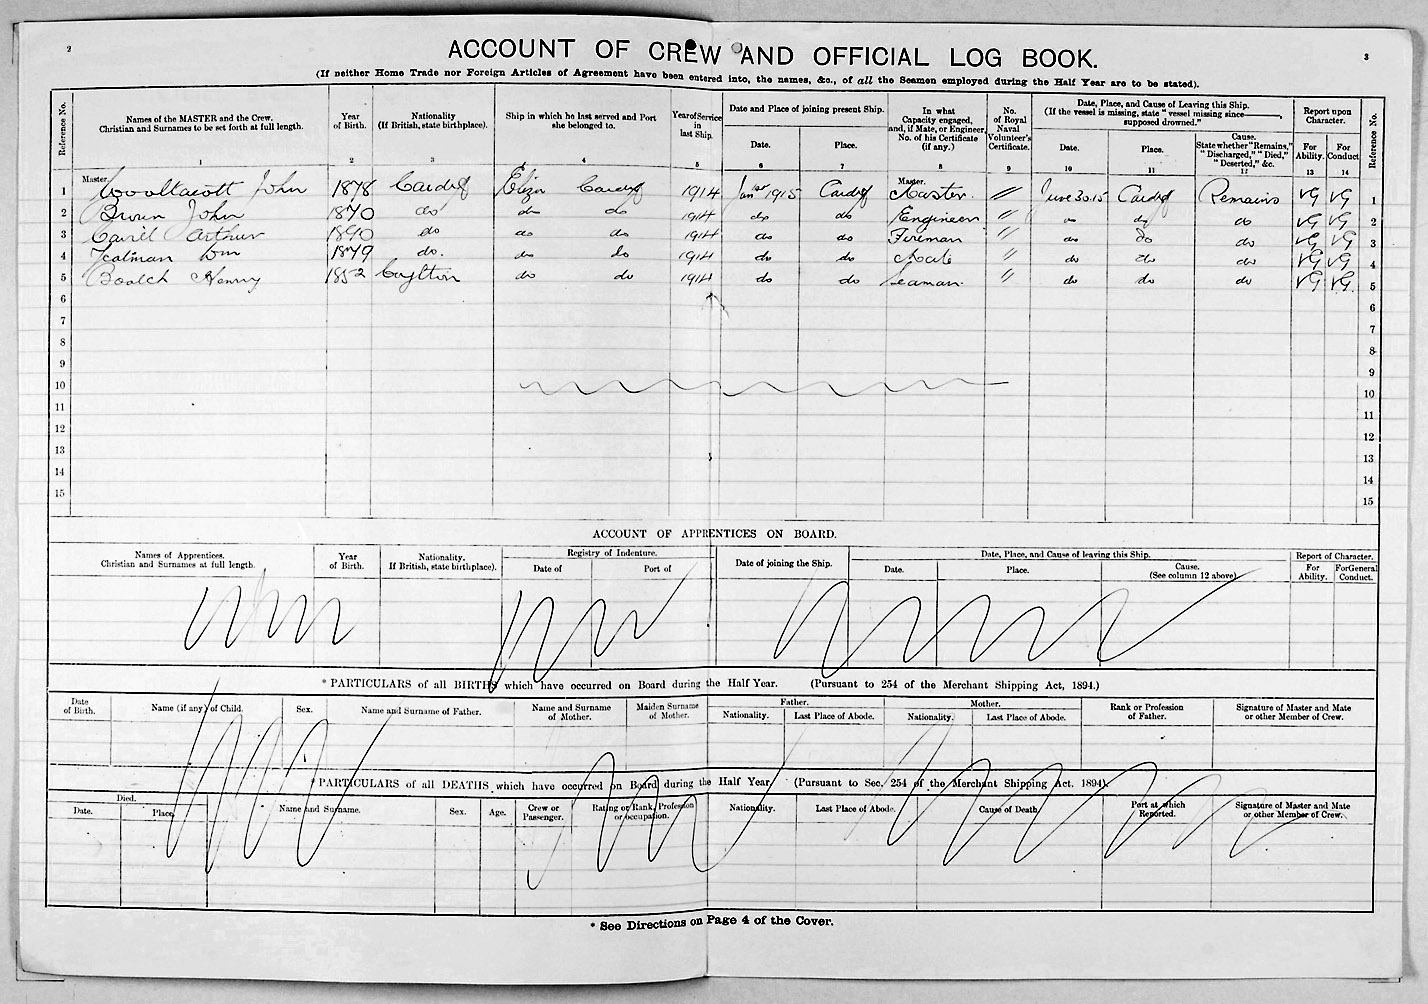 2
3
ACCOUNT OF CREW AND OFFICIAL LOG BOOK.
(If neither Home Trade nor Foreign Articles of Agreement have been entered into, the names, &c., of all the Seamen employed during the Half Year are to be stated).
Reference No.
Names of the MASTER and the Crew. Christian and Surnames to be set forth at full length.
1
Year of Birth.
2
Nationality (If British, state birthplace).
3
Ship in which he last served and Port she belonged to.
4
Year of Service in last Ship.
5
Date and Place of joining present Ship.
Date.
6
Place.
7
In what Capacity engaged, and, if Mate, or Engineer, No. of his Certificate (if any.)
8
No. of Royal Naval Volunteer's Certificate.
9
Date, Place, and Cause of Leaving this Ship. (If the vessel is missing, state "vessel missing since——, supposed drowned."
Date.
10
Place.
11
Cause. State whether "Remains," "Discharged," "Died," "Deserted," &c.
12
Report upon Character.
For Ability.
13
For Conduct
14
Reference No.
1 Master. Woollacott John 1878 Cardiff Eliza Cardiff 1914 Jan 1st 1915 Cardiff Master. Master. " June 30.15 Cardiff Remains VG VG 1
2 Brown John 1870 do do do 1914 do do Engineer " do do do VG VG 2
3 Arthur 1890 do do do 1914 do do Fireman " do do do VG VG 3
4 Wm 1879 do. do do 1914 do do Mate " do do do VG VG 4
5 Henry 1852 do do 1914 do do Seaman. " do do do VG VG 5
6 6
7 7
8 8
9 9
10 10
11 11
12 12
13 13
14 14
15 15
ACCOUNT OF APPRENTICES ON BOARD.
Names of Apprentices. Christian and Surnames at full length.
Year of Birth.
Nationality. If British, state birthplace).
Registry of Indenture.
Date of
Port of
Date of joining the Ship.
Date, Place, and Cause of leaving this Ship.
Date.
Place.
Cause. (See column 12 above)
Report of Character.
For Ability.
For General Conduct.
* PARTICULARS of all BIRTHS which have occurred on Board during the Half Year. (Pursuant to 254 of the Merchant Shipping Act, 1894.)
Date of Birth.
Name (if any) of Child.
Sex.
Name and Surname of Father.
Name and Surname of Mother.
Maiden Surname of Mother.
Father.
Nationality.
Last Place of Abode.
Mother.
Nationality.
Last Place of Abode.
Rank or Profession of Father.
Signature of Master and Mate or other Member of Crew.
* PARTICULARS of all DEATHS which have occurred on Board during the Half Year. (Pursuant to Sec. 254 of the Merchant Shipping Act. 1894).
Died.
Date.
Place.
Name and Surname.
Sex.
Age.
Crew or Passenger.
Rating or Rank, Profession or occupation.
Nationality.
Last Place of Abode.
Cause of Death.
Port at which Reported.
Signature of Master and Mate or other Member of Crew.
* See Directions on Page 4 of the Cover.